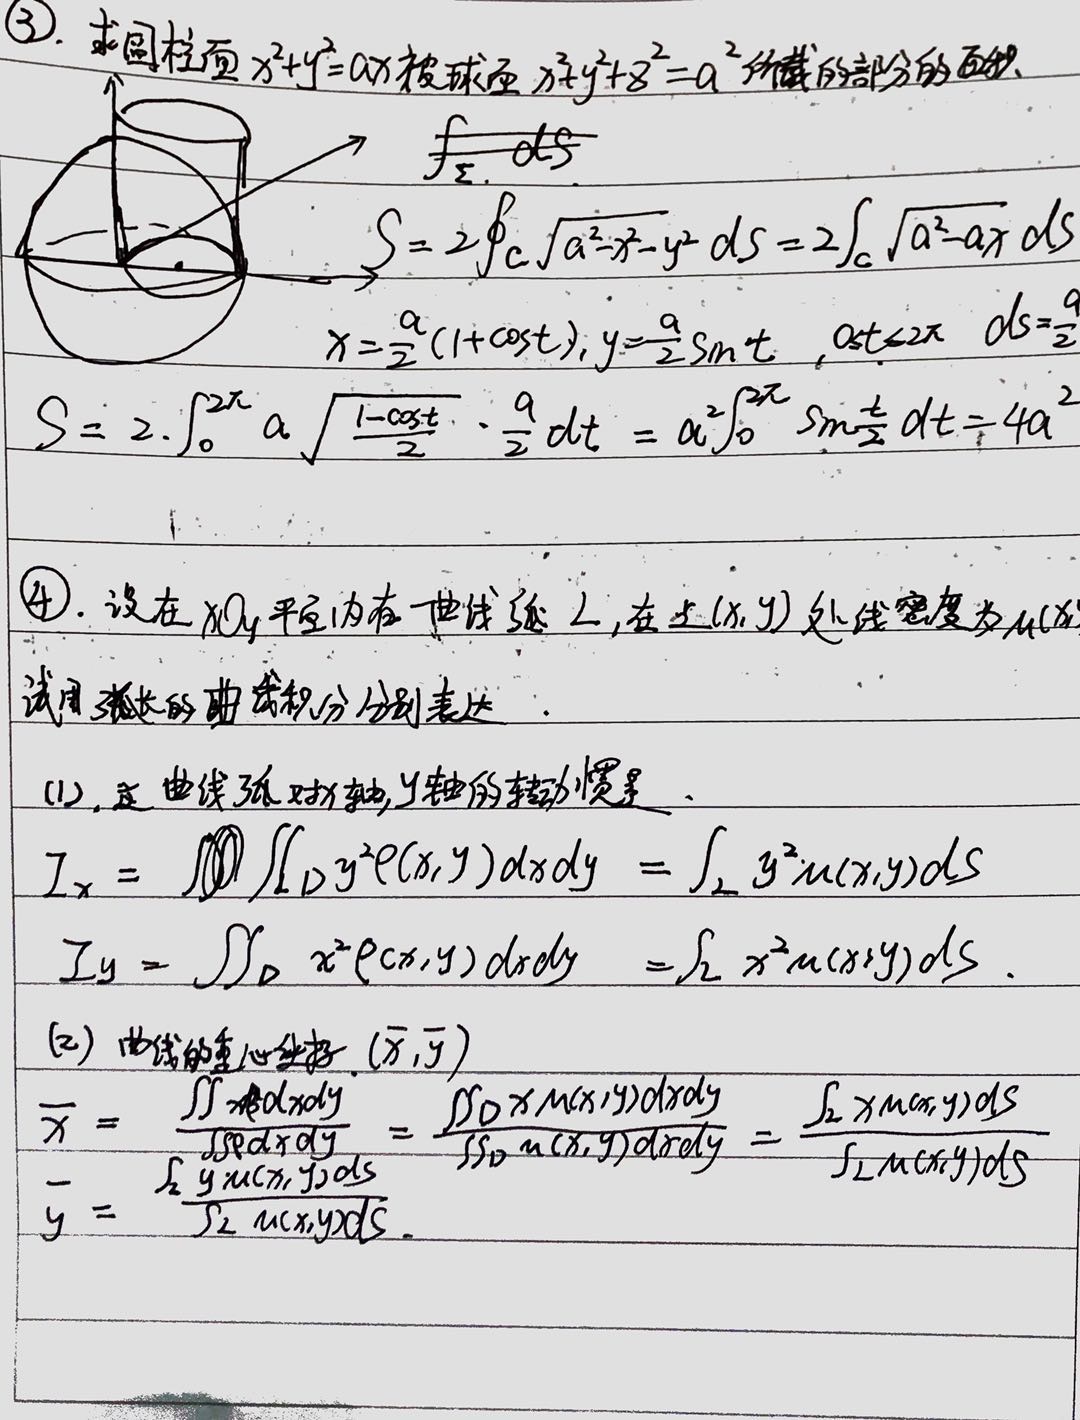 ③. 求圆柱面 x²+y²=ax 被球面 x²+y²+z²=a² 所截的部分的面积.
∫_Σ. dS
S = 2∮_C √(a²-x²-y²) ds = 2∫_C √(a²-ax) ds
x = a/2 (1+cost), y = a/2 sint , 0≤t≤2π ds = a/2
S = 2·∫₀^{2π} a √((1-cost)/2) · a/2 dt = a²∫₀^{2π} sin t/2 dt = 4a²
④. 设在 xOy 平面内有一曲线弧 L, 在点(x,y) 处线密度为 μ(x,y
试用弧长的曲线积分分别表达.
(1). 这曲线弧对x轴,y轴的转动惯量.
I_x = ∬_D y²ρ(x,y)dxdy = ∫_L y²μ(x,y)ds
I_y = ∬_D x²ρ(x,y)dxdy = ∫_L x²μ(x,y)ds.
(2) 曲线的重心坐标 (x̄,ȳ)
x̄ = ∬xρdxdy / ∬ρdxdy = ∬_D xμ(x,y)dxdy / ∬_D μ(x,y)dxdy = ∫_L xμ(x,y)ds / ∫_L μ(x,y)ds
ȳ = ∫_L yμ(x,y)ds / ∫_L μ(x,y)ds.